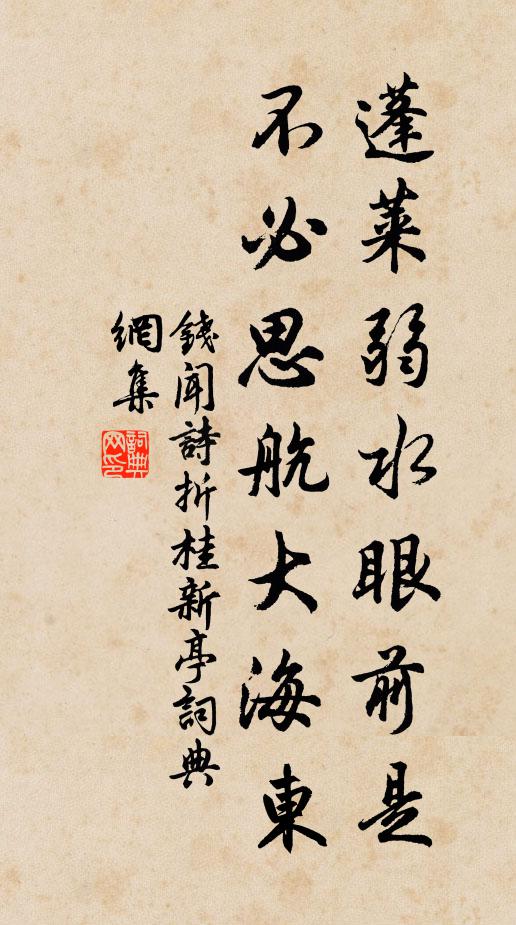 蓬莱弱水眼前是
不必思航大海東
錢聞詩折桂新亭詞典
網集
詞典
网印